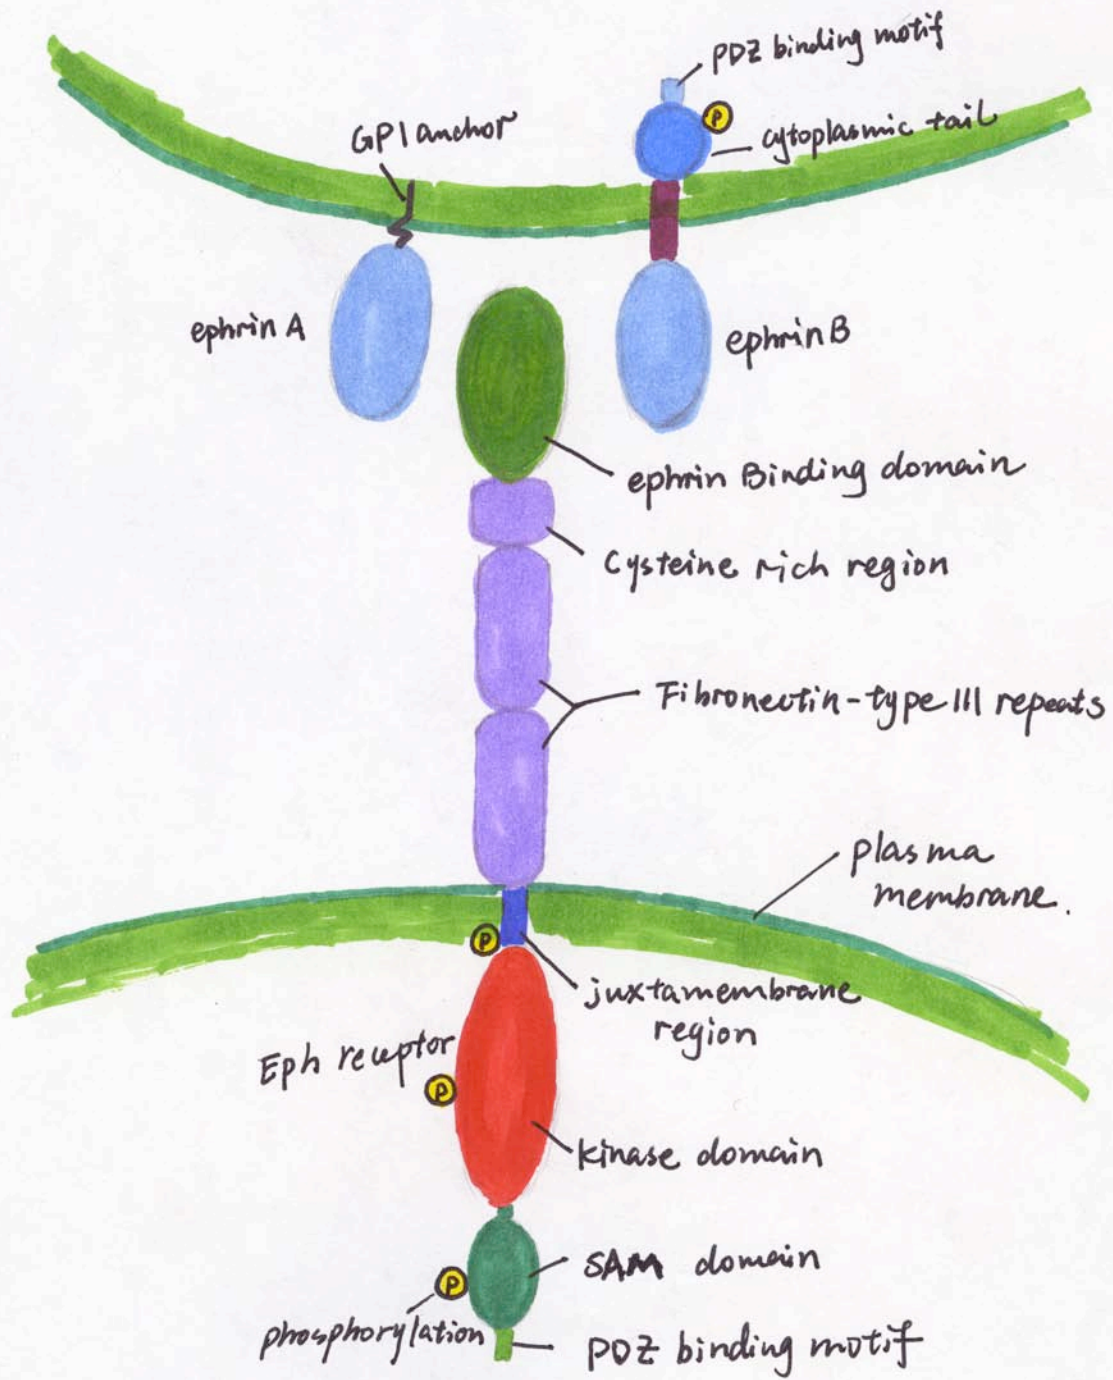 PDZ binding motif
P
cytoplasmic tail
GPI anchor
ephrin A
ephrin B
ephrin Binding domain
Cysteine rich region
Fibronectin-type III repeats
plasma
membrane.
P
juxtamembrane
region
Eph receptor
P
kinase domain
SAM domain
P
phosphorylation
PDZ binding motif